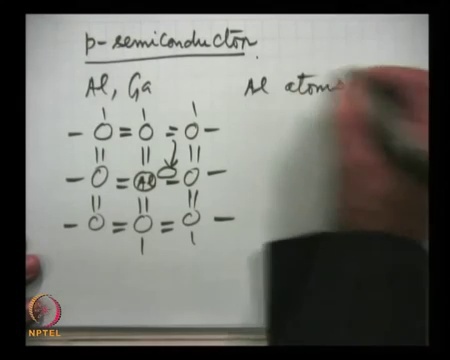 p-semiconductor.
Al, Ga
Al atoms
Al
NPTEL